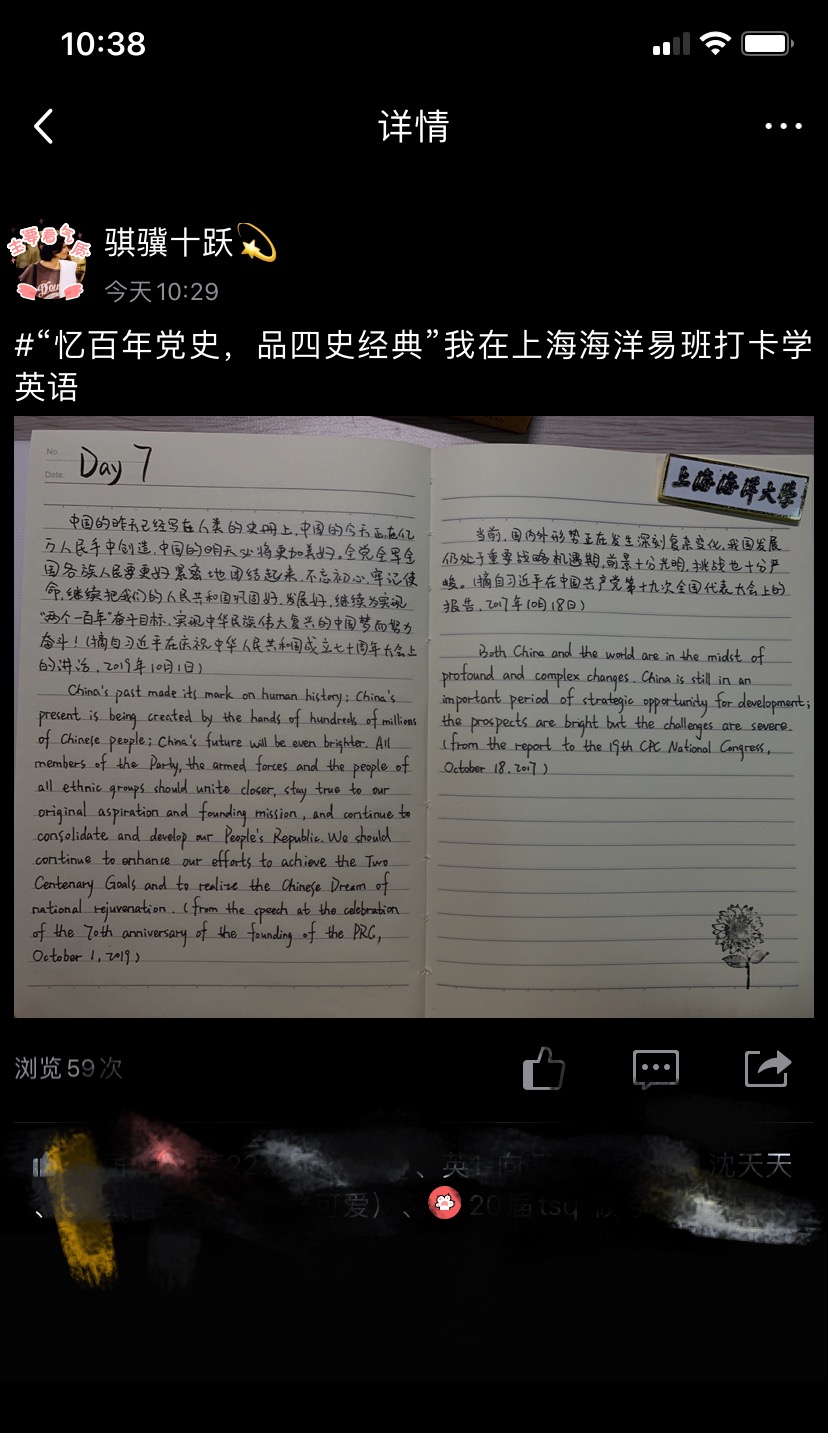 10:38
详情
主要看气质
骐骥十跃
今天10:29
#“忆百年党史，品四史经典”我在上海海洋易班打卡学
英语
No.
Date.
Day 7
中国的昨天已经写在人类的史册上，中国的今天正在亿
万人民手中创造，中国的明天必将更加美好。全党全军全
国各族人民要更好紧密地团结起来，不忘初心，牢记使
命，继续把我们的人民共和国巩固好，发展好，继续为实现
“两个一百年”奋斗目标、实现中华民族伟大复兴的中国梦而努力
奋斗！（摘自习近平在庆祝中华人民共和国成立七十周年大会上
的讲话，2019年10月1日）
China's past made its mark on human history; China's
present is being created by the hands of hundreds of millions
of Chinese people; China's future will be even brighter. All
members of the Party, the armed forces and the people of
all ethnic groups should unite closer, stay true to our
original aspiration and founding mission, and continue to
consolidate and develop our People's Republic. We should
continue to enhance our efforts to achieve the Two
Centenary Goals and to realize the Chinese Dream of
national rejuvenation. (from the speech at the celebration
of the 70th anniversary of the founding of the PRC,
October 1, 2019)
上海海洋大學
当前，国内外形势正在发生深刻复杂变化，我国发展
仍处于重要战略机遇期，前景十分光明，挑战也十分严
峻。（摘自习近平在中国共产党第十九次全国代表大会上的
报告，2017年10月18日）
Both China and the world are in the midst of
profound and complex changes. China is still in an
important period of strategic opportunity for development;
the prospects are bright but the challenges are severe.
(from the report to the 19th CPC National Congress,
October 18, 2017)
浏览59次
22 、英 向 沈天天
、 可爱）、 20届tsq